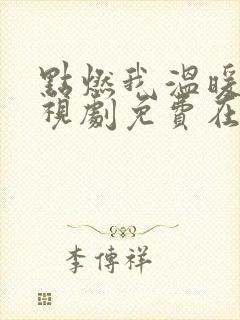 點燃我,溫暖
視劇免費在
李傳祥